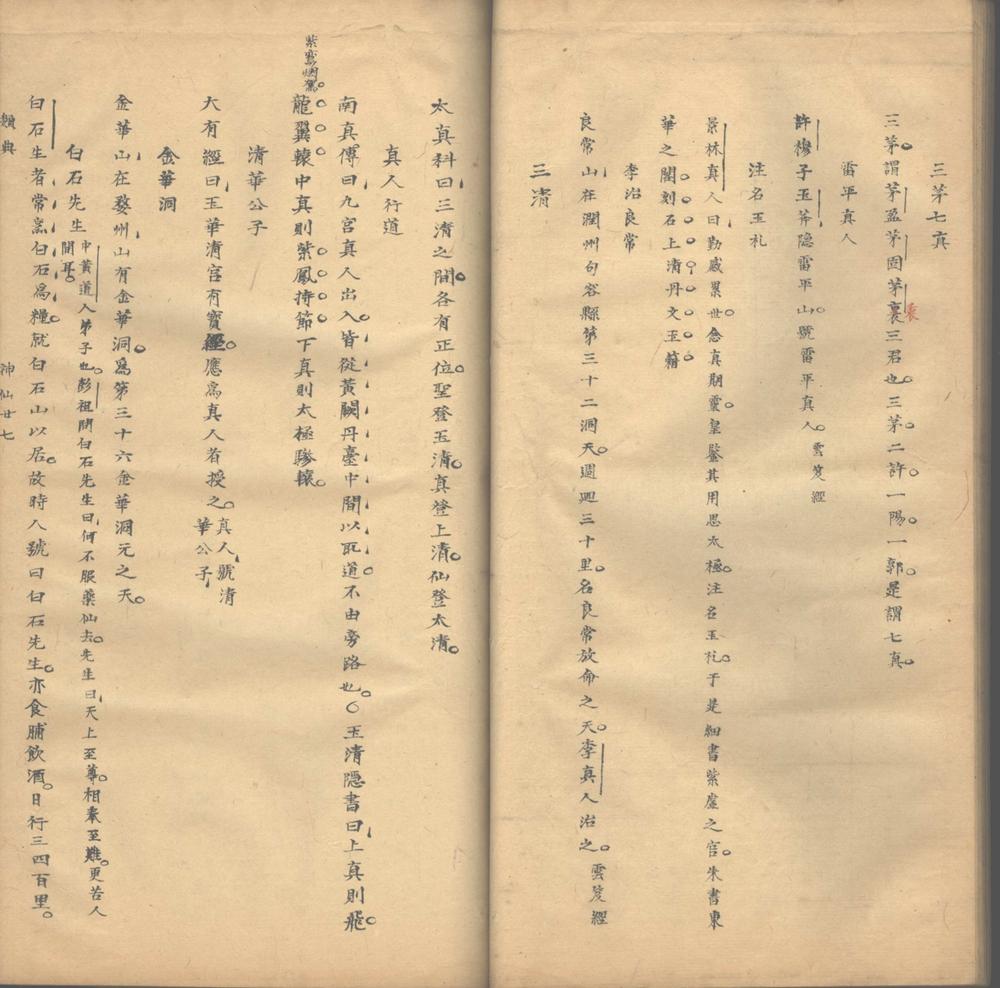 三茅七真
三茅謂茅盈茅固茅裏三君也三茅二許一陽一郭是謂七真
衷
雷平真人
許穆子玉斧隐雷平山號雷平真人 雲笈經
注名玉札
景林真人曰勤感累世念真期靈皇鑒其用思太極注名玉札于是細書紫虛之宫朱書東
華之閣刻石上清丹文玉籍
李治良常
良常山在潤州句容縣第三十二洞天週迴三十里名良常放命之天李真人治之 雲笈經
三清
太真科曰三清之間各有正位聖登玉清真登上清仙登太清
真人行道
南真傳曰九宫真人出入皆從黃闕丹臺中間以取道不由旁路也○玉清隐書曰上真則飛
龍翼轅中真則紫鳳持節下真則太極驂轅
清華公子
大有經曰玉華清宫有寳經應為真人者授之 真人號清
華公子
金華洞
金華山在婺州山有金華洞為第三十六金華洞元之天
白石先生 中黃道人弟子也彭祖問白石先生曰何不服藥仙去先生曰天上至尊相奉至難更苦人
間耳
白石生者常煮白石為糧就白石山以居故時人號曰白石先生亦食脯飲酒日行三四百里
類典
神仙廿七